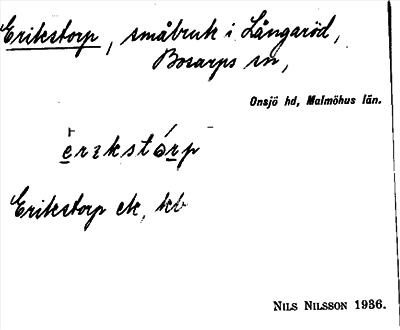 Erikstorp, småbruk i Långaröd,
Bosarps sn,
Onsjö hd, Malmöhus län.
èrıkstórp
Erikstorp ek, kb
NILS NILSSON 1936.